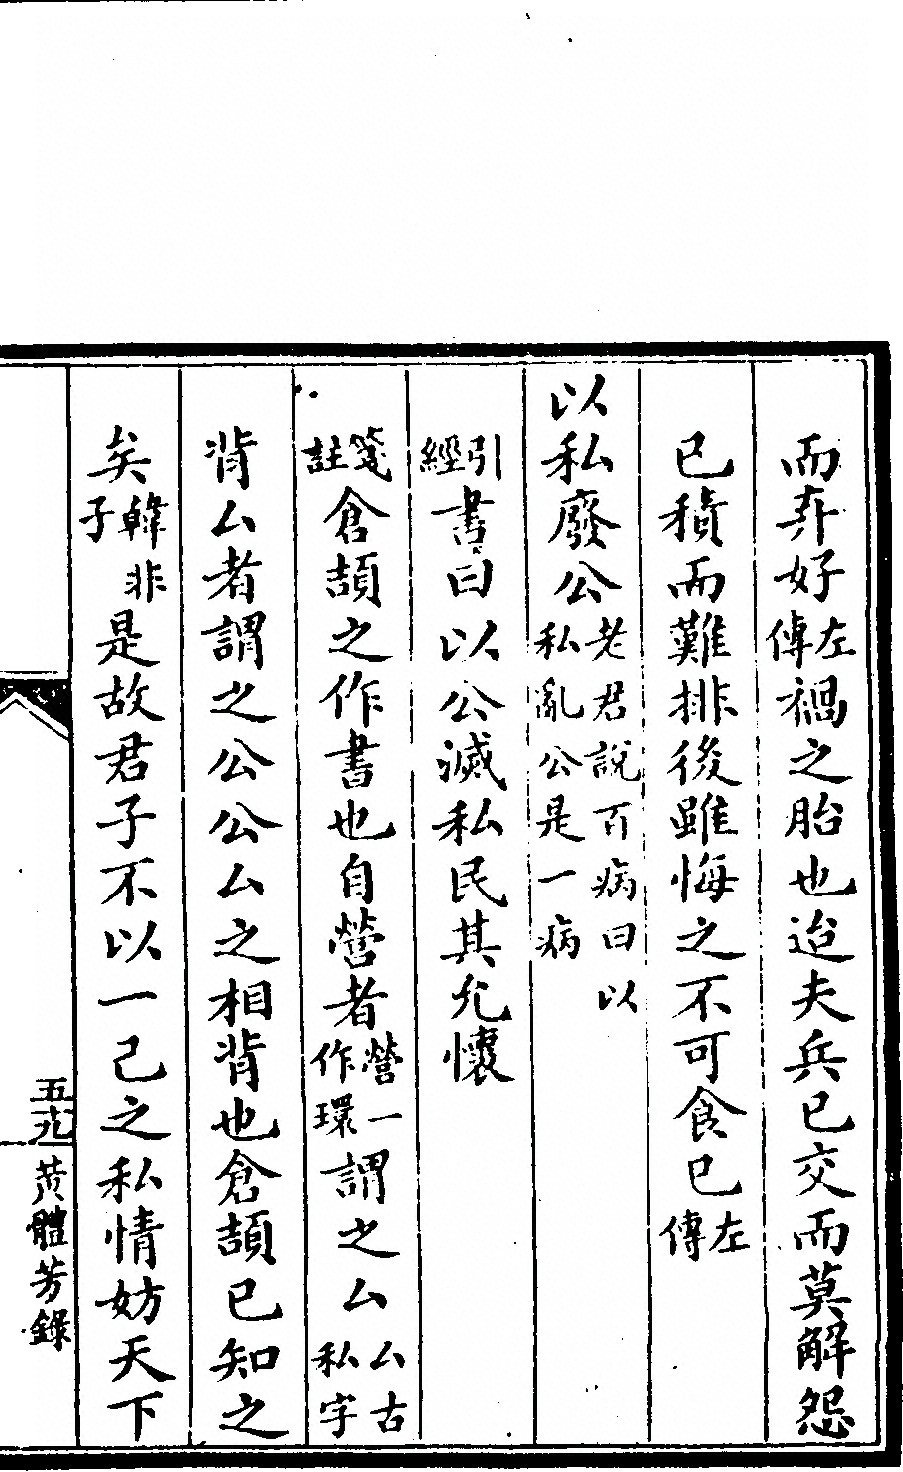 而弃好左傳禍之胎也迨夫兵已交而莫解怨
已積而難排後雖悔之不可食已左傳
以私廢公老君說百病曰以私亂公是一病
引經書曰以公滅私民其允懷
箋註倉頡之作書也自營者營一作環謂之厶厶古私字
背厶者謂之公公厶之相背也倉頡已知之
矣韓非子是故君子不以一己之私情妨天下
黃體芳錄